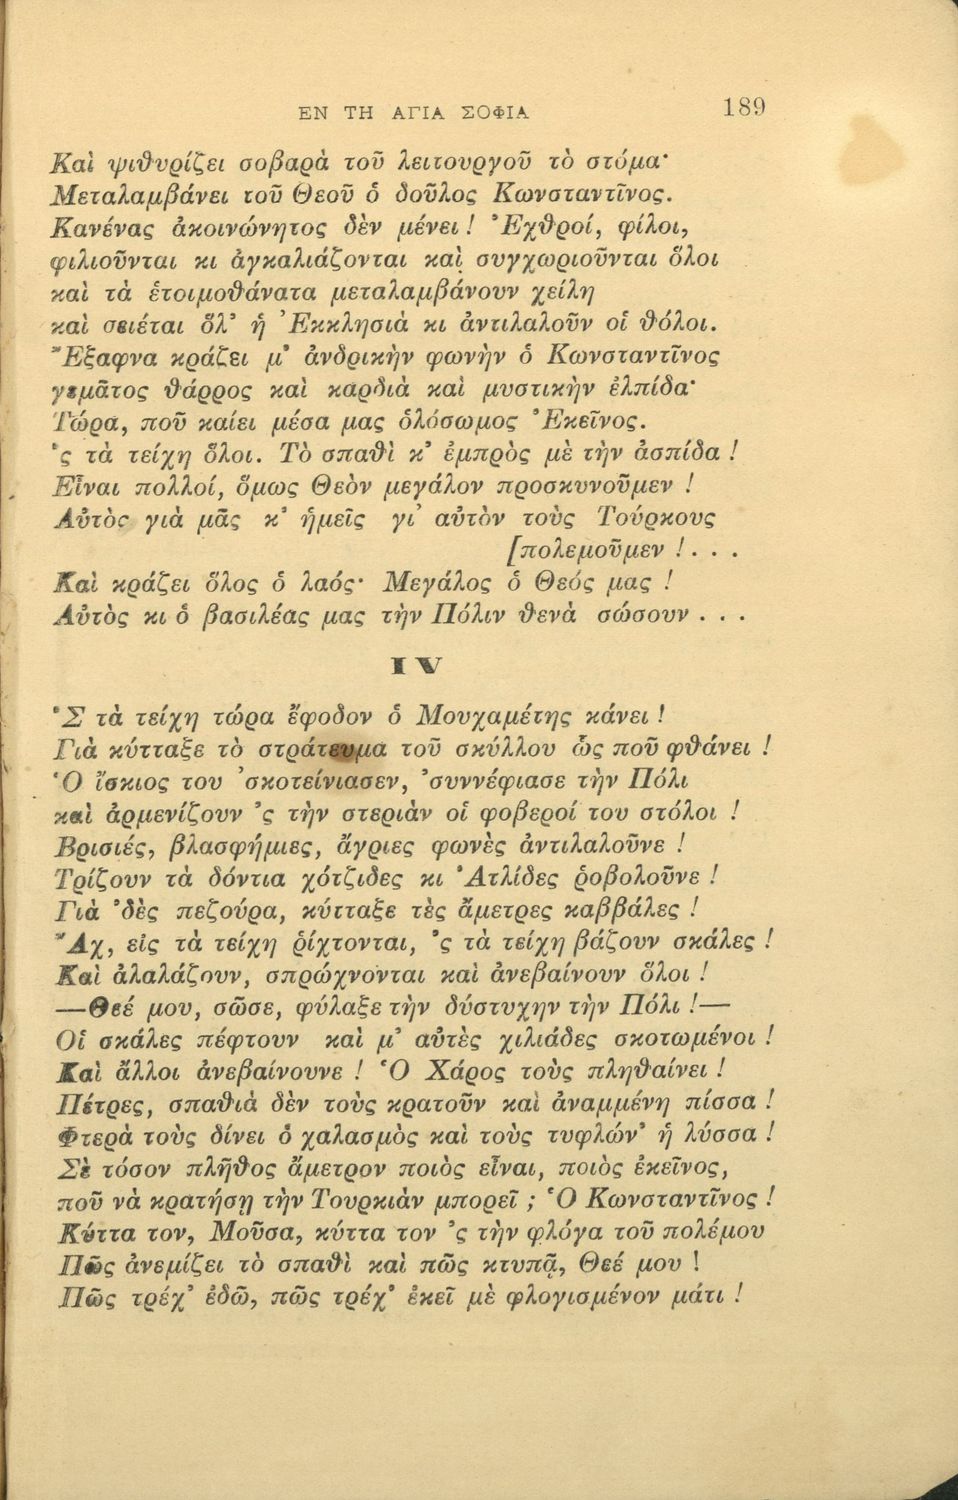 ΕΝ ΤΗ ΑΓΙΑ ΣΟΦΙΑ 189
Καὶ ψιθυρίζει σοβαρὰ τοῦ λειτουργοῦ τὸ στόμα·
Μεταλαμβάνει τοῦ Θεοῦ ὁ δοῦλος Κωνσταντῖνος.
Κανένας ἀκοινώνητος δὲν μένει! Ἐχθροί, φίλοι,
φιλιοῦνται κι ἀγκαλιάζονται καὶ συγχωριοῦνται ὅλοι
καὶ τὰ ἑτοιμοθάνατα μεταλαμβάνουν χείλη
καὶ σειέται ὅλ' ἡ Ἐκκλησιὰ κι ἀντιλαλοῦν οἱ θόλοι.
Ἔξαφνα κράζει μ' ἀνδρικὴν φωνὴν ὁ Κωνσταντῖνος
γεμᾶτος θάρρος καὶ καρδιὰ καὶ μυστικὴν ἐλπίδα·
Τώρα, ποῦ καίει μέσα μας ὁλόσωμος Ἐκεῖνος.
'ς τὰ τείχη ὅλοι. Τὸ σπαθὶ κ' ἐμπρὸς μὲ τὴν ἀσπίδα!
Εἶναι πολλοί, ὅμως Θεὸν μεγάλον προσκυνοῦμεν!
Αὐτὸς γιὰ μᾶς κ' ἡμεῖς γι' αὐτὸν τοὺς Τούρκους
[πολεμοῦμεν!...
Καὶ κράζει ὅλος ὁ λαός· Μεγάλος ὁ Θεός μας!
Αὐτὸς κι ὁ βασιλέας μας τὴν Πόλιν θενὰ σώσουν...
IV
'Σ τὰ τείχη τώρα ἔφοδον ὁ Μουχαμέτης κάνει!
Γιὰ κύτταξε τὸ στράτευμα τοῦ σκύλλου ὣς ποῦ φθάνει!
Ὁ ἴσκιος του 'σκοτείνιασεν, 'συννέφιασε τὴν Πόλι
καὶ ἀρμενίζουν 'ς τὴν στεριὰν οἱ φοβεροί του στόλοι!
Βρισιές, βλασφήμιες, ἄγριες φωνὲς ἀντιλαλοῦνε!
Τρίζουν τὰ δόντια χότζιδες κι Ἀτλίδες ῥοβολοῦνε!
Γιὰ 'δὲς πεζούρα, κύτταξε τὲς ἄμετρες καββάλες!
Ἄχ, εἰς τὰ τείχη ῥίχτονται, 'ς τὰ τείχη βάζουν σκάλες!
Καὶ ἀλαλάζουν, σπρώχνονται καὶ ἀνεβαίνουν ὅλοι!
—Θεέ μου, σῶσε, φύλαξε τὴν δύστυχην τὴν Πόλι!—
Οἱ σκάλες πέφτουν καὶ μ' αὐτὲς χιλιάδες σκοτωμένοι!
Καὶ ἄλλοι ἀνεβαίνουνε! Ὁ Χάρος τοὺς πληθαίνει!
Πέτρες, σπαθιὰ δὲν τοὺς κρατοῦν καὶ ἀναμμένη πίσσα!
Φτερὰ τοὺς δίνει ὁ χαλασμὸς καὶ τοὺς τυφλών' ἡ λύσσα!
Σὲ τόσον πλῆθος ἄμετρον ποιὸς εἶναι, ποιὸς ἐκεῖνος,
ποῦ νὰ κρατήσῃ τὴν Τουρκιὰν μπορεῖ; Ὁ Κωνσταντῖνος!
Κύττα τον, Μοῦσα, κύττα τον 'ς τὴν φλόγα τοῦ πολέμου
Πῶς ἀνεμίζει τὸ σπαθὶ καὶ πῶς κτυπᾷ, Θεέ μου!
Πῶς τρέχ' ἐδῶ, πῶς τρέχ' ἐκεῖ μὲ φλογισμένον μάτι!